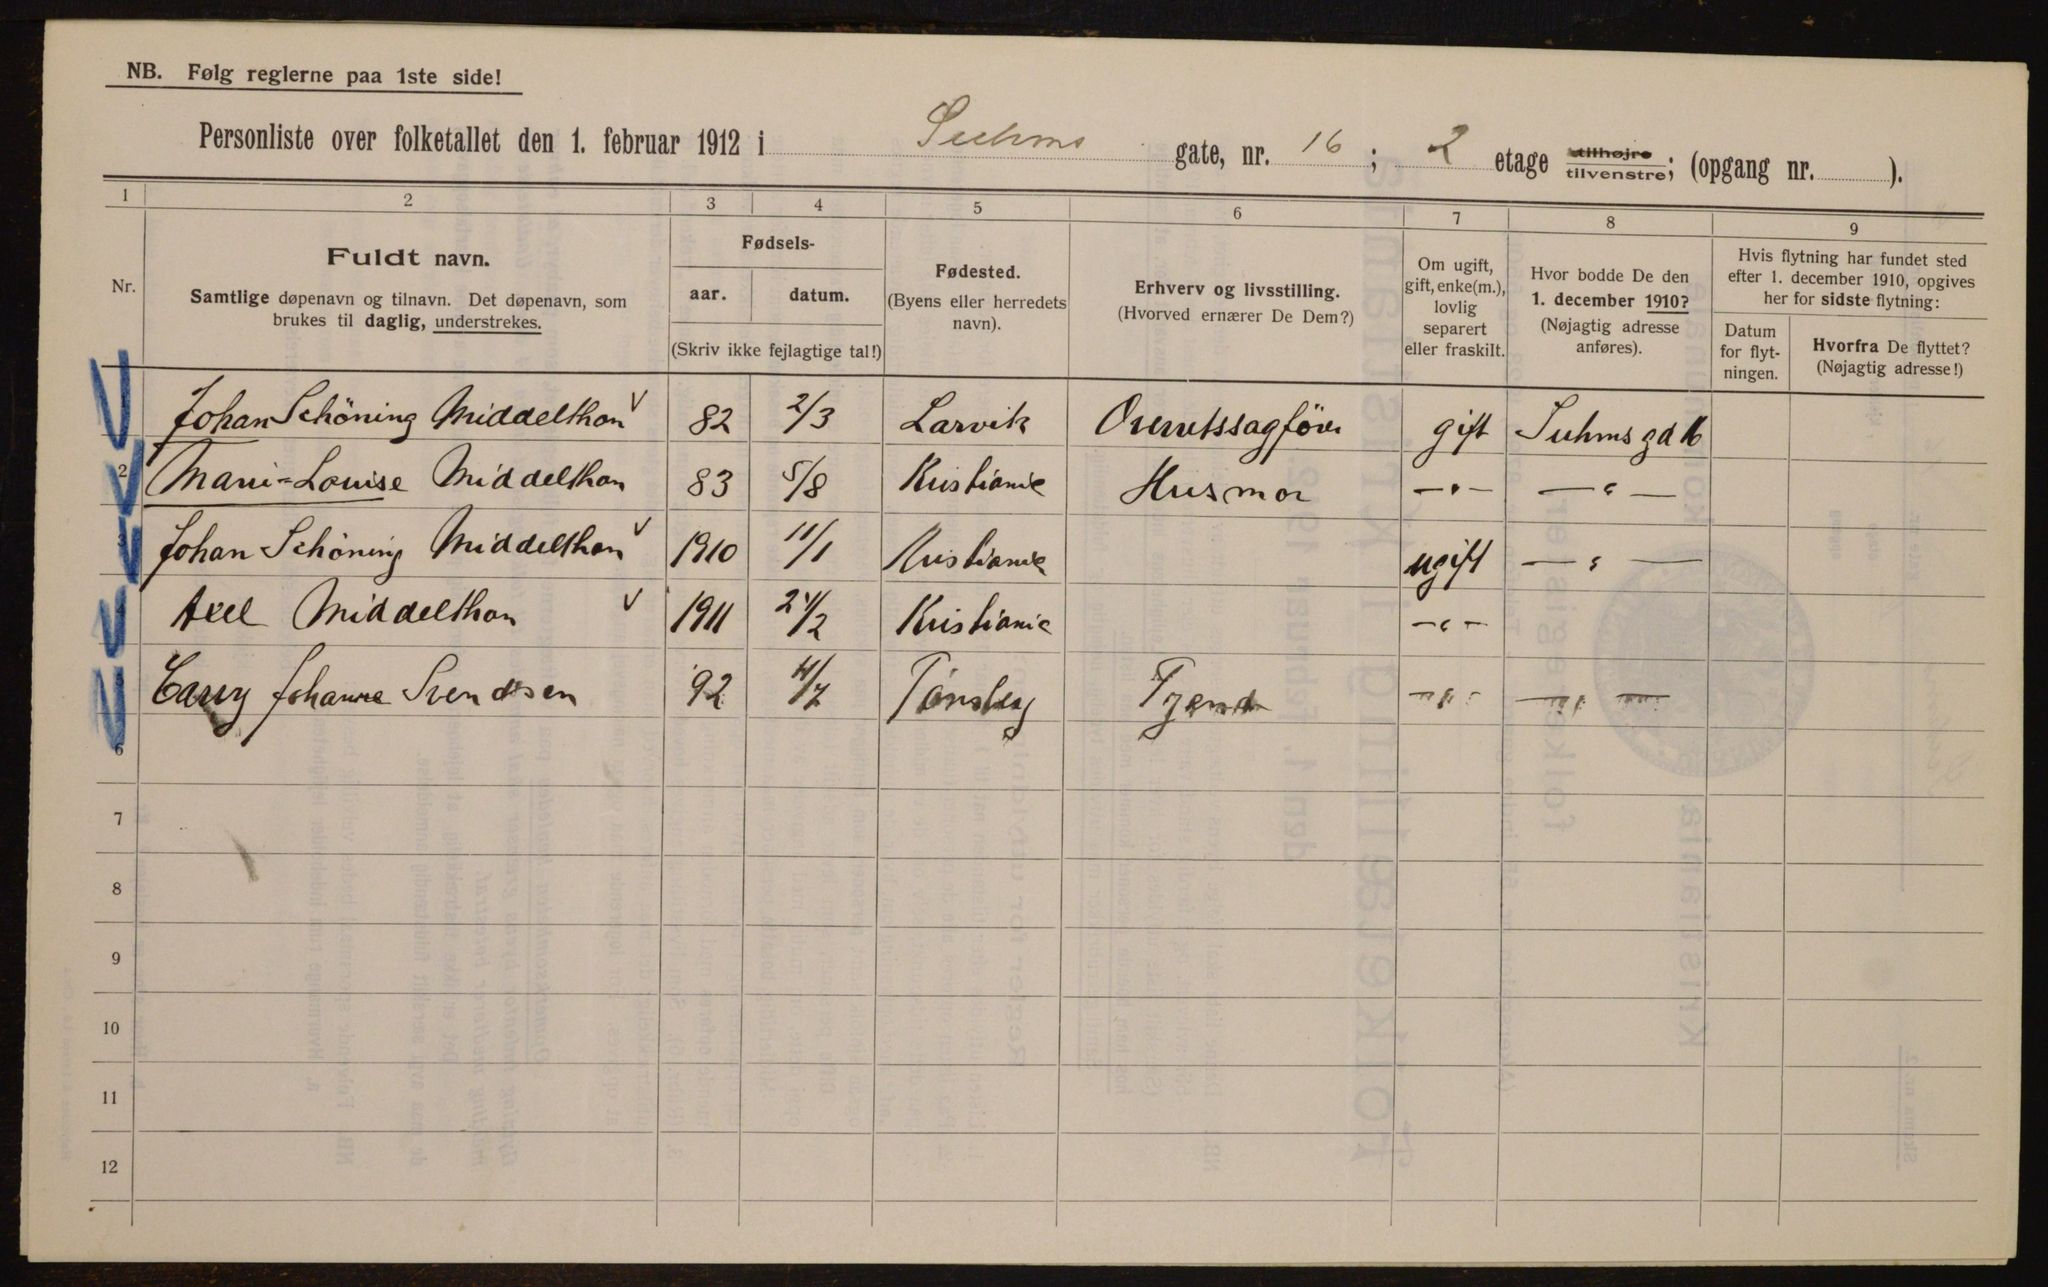 NB. Følg reglerne paa 1ste side!
Personliste over folketallet den 1. februar 1912 i Suhms gate, nr. 16 ; 2 etage tilhøjre tilvenstre; (opgang nr. ).
1 2 3 4 5 6 7 8 9
Nr.
Fuldt navn.
Samtlige døpenavn og tilnavn. Det døpenavn, som
brukes til daglig, understrekes.
Fødsels-
aar. datum.
(Skriv ikke fejlagtige tal!)
Fødested.
(Byens eller herredets
navn).
Erhverv og livsstilling.
(Hvorved ernærer De Dem?)
Om ugift,
gift, enke(m.),
lovlig
separert
eller fraskilt.
Hvor bodde De den
1. december 1910?
(Nøjagtig adresse
anføres).
Hvis flytning har fundet sted
efter 1. december 1910, opgives
her for sidste flytning:
Datum
for flyt-
ningen.
Hvorfra De flyttet?
(Nøjagtig adresse!)
Johan Schöning Middelthon 82 2/3 Larvik Overretssagfører gift Suhms gd 16
2 Marie-Louise Middelthon 83 5/8 Kristiania Husmor —"— —"—
3 Johan Schöning Middelthon 1910 11/1 Kristiania ugift —"—
4 Axel Middelthon 1911 24/2 Kristiania —"—
5 Johanne Svendsen 92 4/7 Tønsberg Tjener —"— —"—
6
7
8
9
10
11
12